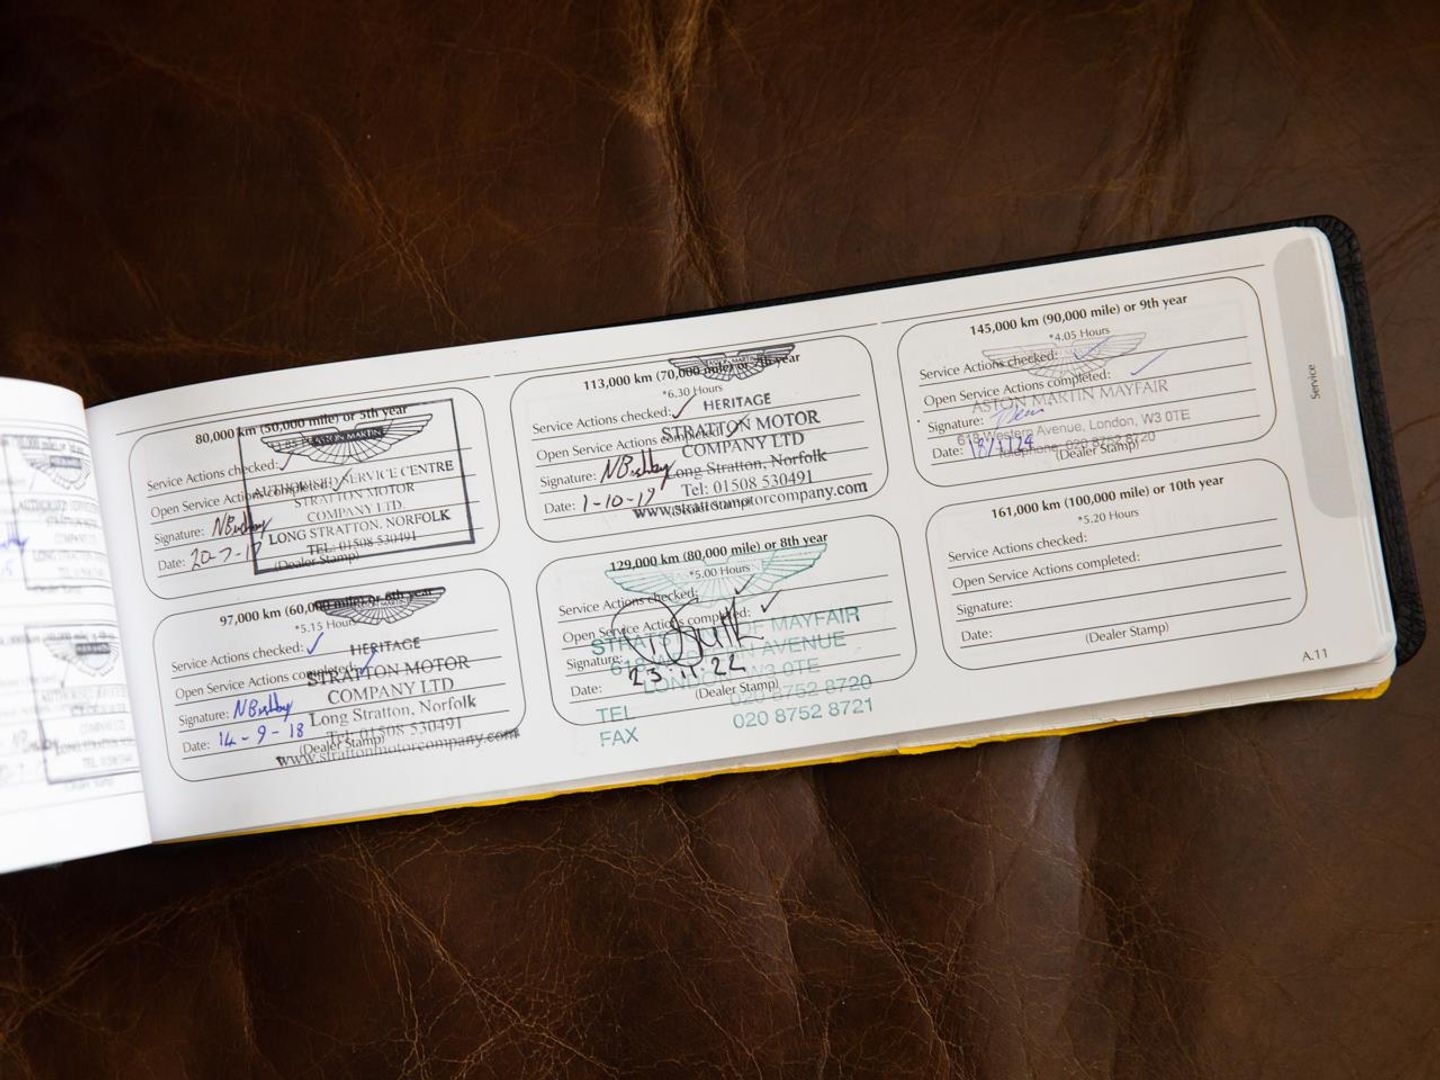 80,000 km (50,000 mile) or 5th year
Service Actions checked:
Open Service Actions completed:
Signature: NBushby
Date: 20-7-17
(Dealer Stamp)
ASTON MARTIN
AUTHORISED SERVICE CENTRE
STRATTON MOTOR
COMPANY LTD
LONG STRATTON, NORFOLK
TEL: 01508 530491
97,000 km (60,000 mile) or 6th year
*5.15 Hours
Service Actions checked:
Open Service Actions completed:
Signature: NBushby
Date: 14-9-18
(Dealer Stamp)
HERITAGE
STRATTON MOTOR
COMPANY LTD
Long Stratton, Norfolk
Tel: 01508 530491
www.strattonmotorcompany.com
113,000 km (70,000 mile) or 7th year
*6.30 Hours
Service Actions checked:
Open Service Actions completed:
Signature: NBushby
Date: 1-10-19
(Dealer Stamp)
HERITAGE
STRATTON MOTOR
COMPANY LTD
Long Stratton, Norfolk
Tel: 01508 530491
www.strattonmotorcompany.com
129,000 km (80,000 mile) or 8th year
*5.00 Hours
Service Actions checked:
Open Service Actions completed:
Signature:
Date: 23.11.22
(Dealer Stamp)
OF MAYFAIR
AVENUE
LONDON W3 0TE
TEL 020 8752 8720
FAX 020 8752 8721
145,000 km (90,000 mile) or 9th year
*4.05 Hours
Service Actions checked:
Open Service Actions completed:
Signature:
Date:
(Dealer Stamp)
ASTON MARTIN MAYFAIR
618 Western Avenue, London, W3 0TE
Telephone: 020 8752 8720
161,000 km (100,000 mile) or 10th year
*5.20 Hours
Service Actions checked:
Open Service Actions completed:
Signature:
Date:
(Dealer Stamp)
Service
A.11